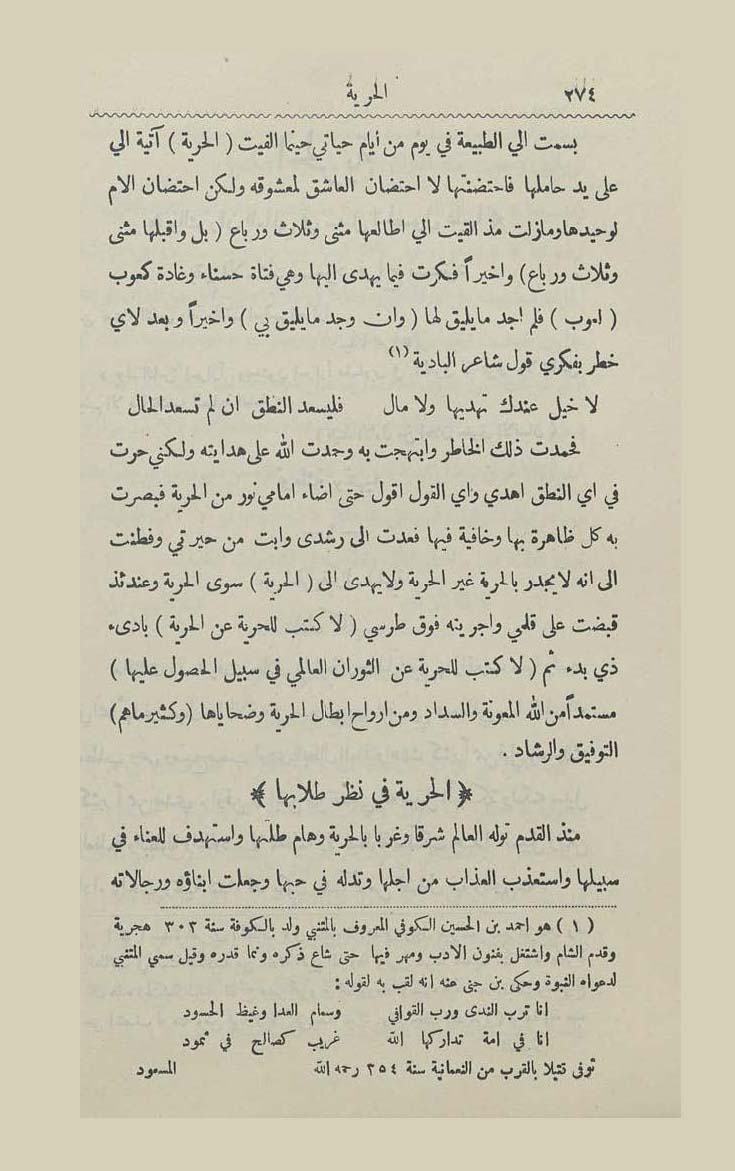 ٢٧٤ الحرية
بسمت الي الطبيعة في يوم من أيام حياتي حينما الفيت ( الحرية ) آتية الي
على يد حاملها فاحتضنتها لا احتضان العاشق لمعشوقه ولكن احتضان الام
لوحيدها ومازلت مذ القيت الي اطالعها مثنى وثلاث ورباع ( بل واقبلها مثنى
وثلاث ورباع ) واخيراً فكرت فيما يهدى اليها وهي فتاة حسناء وغادة كعوب
( لعوب ) فلم اجد مايليق لها ( وان وجد مايليق بي ) واخيراً و بعد لاي
خطر بفكري قول شاعر البادية (١)
لا خيل عندك تهديها ولا مال فليسعد النطق ان لم تسعد الحال
فحمدت ذلك الخاطر وابتهجت به وحمدت الله على هدايته ولكني حرت
في اي النطق اهدي واي القول اقول حتى اضاء امامي نور من الحرية فبصرت
به كل ظاهرة بها وخافية فيها فعدت الى رشدى وابت من حيرتي وفطنت
الى انه لايجدر بالحرية غير الحرية ولايهدى الى ( الحرية ) سوى الحرية وعندئذ
قبضت على قلمي واجريته فوق طرسي ( لاكتب للحرية عن الحرية ) بادىء
ذي بدء ثم ( لا كتب للحرية عن الثوران العالمي في سبيل الحصول عليها )
مستمداً من الله المعونة والسداد ومن ارواح ابطال الحرية وضحاياها (وكثير ماهم)
التوفيق والرشاد .
﴿ الحرية في نظر طلابها ﴾
منذ القدم توله العالم شرقا وغربا بالحرية وهام طلبها واستهدف للعناء في
سبيلها واستعذب العذاب من اجلها وتدله في حبها وجعلت ابناؤه ورجالاته
( ١ ) هو احمد بن الحسين الكوفي المعروف بالمتنبي ولد بالكوفة سنة ٣٠٣ هجرية
وقدم الشام واشتغل بفنون الادب ومهر فيها حتى شاع ذكره ونما قدره وقيل سمي المتنبي
لدعواه النبوة وحكى بن جنى عنه انه لقب به لقوله :
انا ترب الندى ورب القوافي وسمام العدا وغيظ الحسود
انا في امة تداركها الله غريب كصالح في ثمود
توفى قتيلا بالقرب من النعمانية سنة ٣٥٤ رحمه الله المسعود